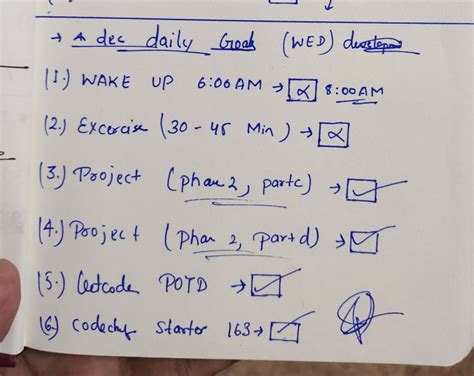 → 4 dec daily Goals (WED)
(1.) WAKE UP 6:00 AM → 8:00 AM
(2.) Excercise (30 - 45 Min) →
(3.) Project (phase 2, part c) →
(4.) Project (phase 2, part d) →
(5.) Leetcode POTD →
(6.) Codechef Starter 163 →